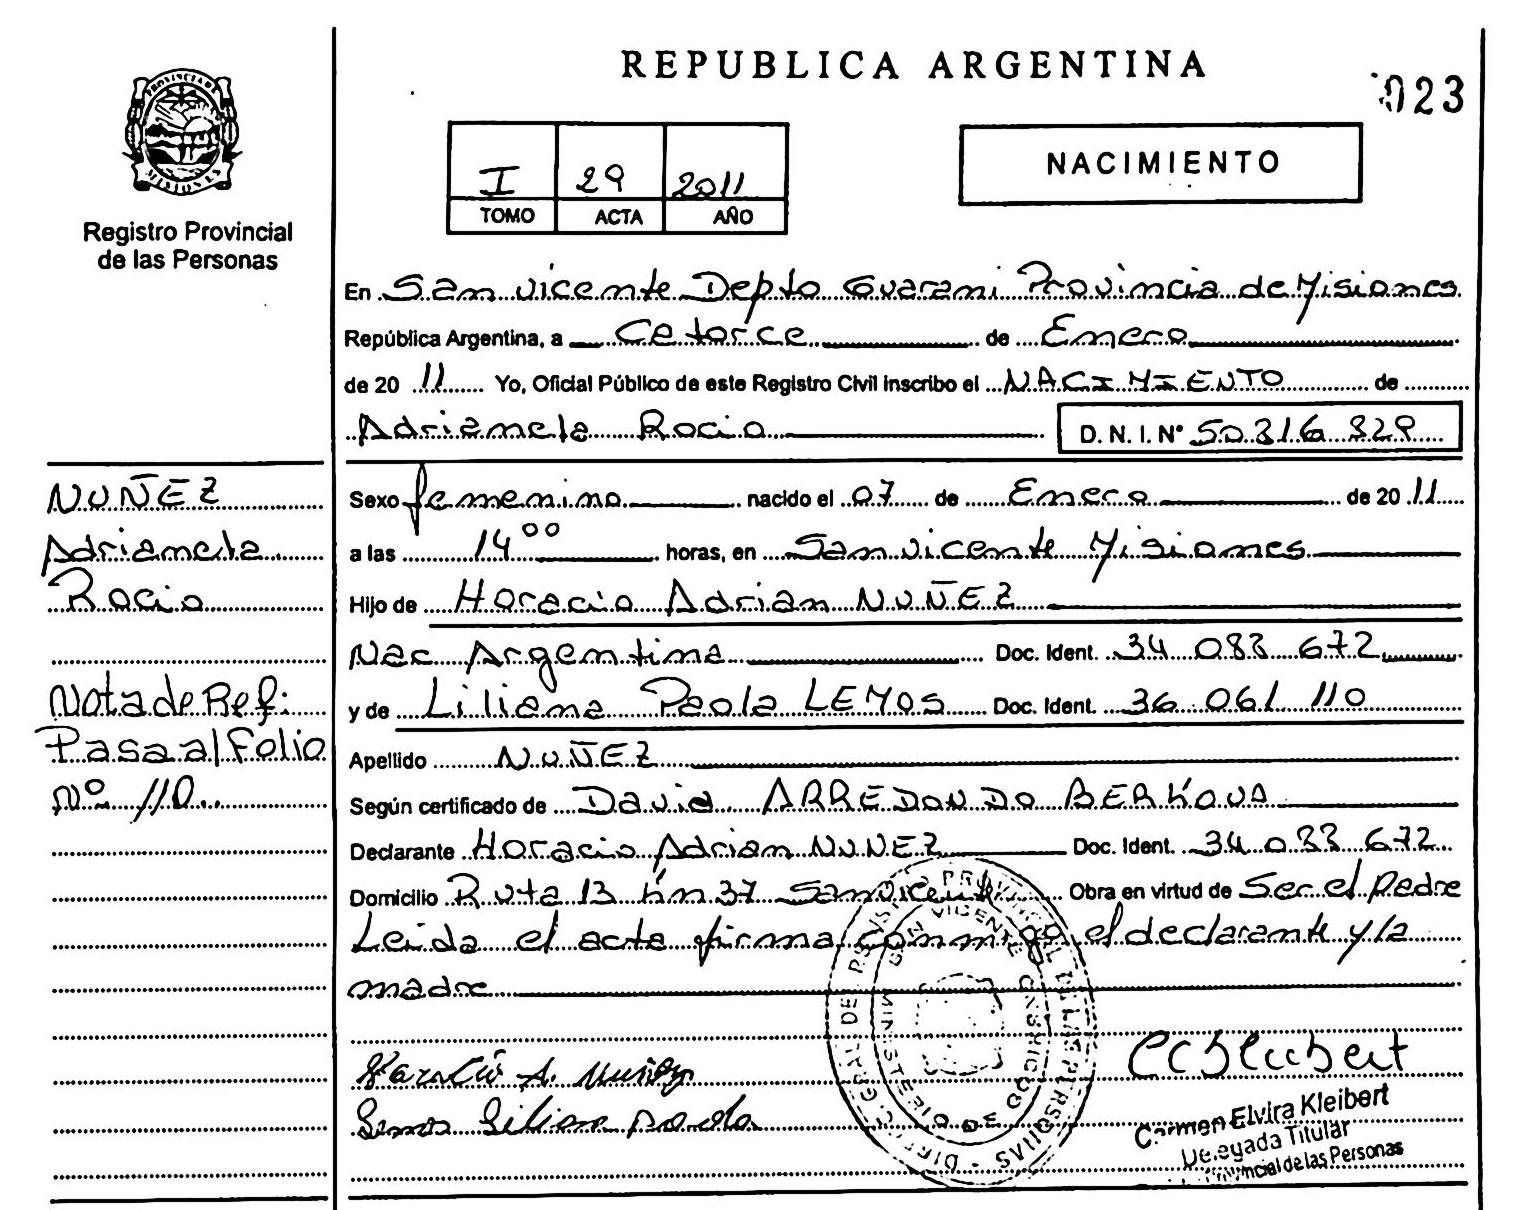 REPUBLICA ARGENTINA
023
PROVINCIA DE
MISIONES
Registro Provincial
de las Personas
I 29 2011
TOMO ACTA AÑO
NACIMIENTO
En San Vicente Depto Guarani Provincia de Misiones
República Argentina, a Catorce de Enero
de 20 11 Yo, Oficial Público de este Registro Civil inscribo el NACIMIENTO de
Adrianela Rocio D. N. I. Nº 50.316.329
NUÑEZ
Adrianela
Rocio
Nota de Ref:
Pasa al Folio
Nº 110
Sexo femenino nacido el 07 de Enero de 20 11
a las 14 00 horas, en San Vicente Misiones
Hijo de Horacio Adrian NUÑEZ
Nac Argentina Doc. Ident. 34 083 672
y de Liliana Paola LEMOS Doc. Ident. 36 061 110
Apellido NUÑEZ
Según certificado de David ARREDONDO BERKOVA
Declarante Horacio Adrian NUÑEZ Doc. Ident. 34 083 672
Domicilio Ruta 13 km 37 San Vicente Obra en virtud de Ser el padre
Leida el acta firma conmigo el declarante y la
madre
Horacio A. Nuñez
Lemos Lilian paola
Carmen Elvira Kleibert
Delegada Titular
Provincial de las Personas